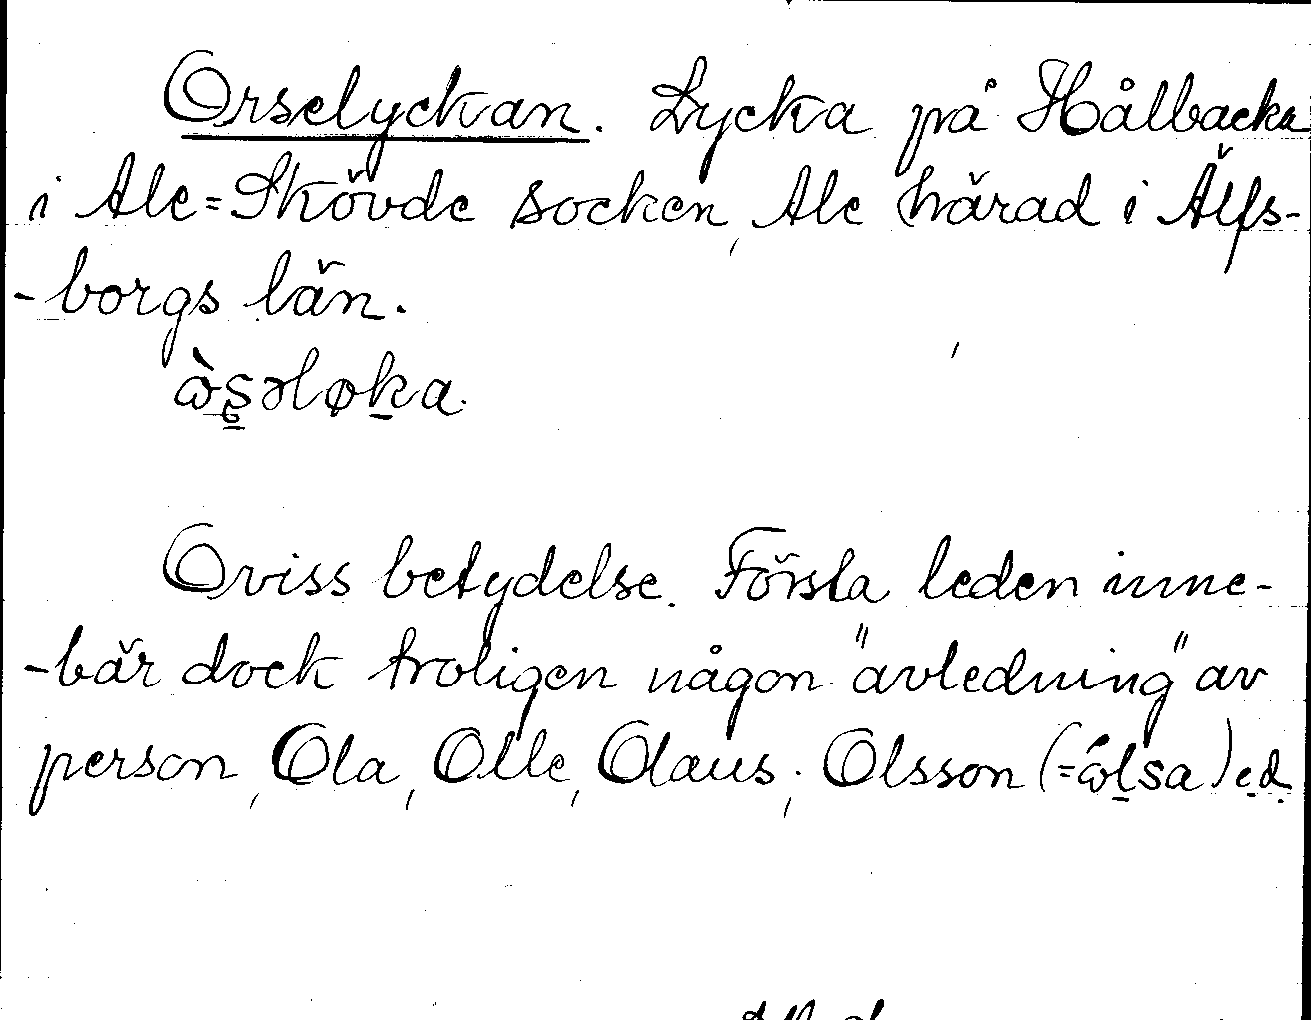 Orselyckan. Lycka på Hålbacka
i Ale=Skövde socken, Ale härad i Älfs-
-borgs län.
ὼʂəløka.
Oviss betydelse. Första leden inne-
-bär dock troligen någon "avledning" av
person, Ola, Olle, Olaus; Olsson (=ώlsa) e.d.